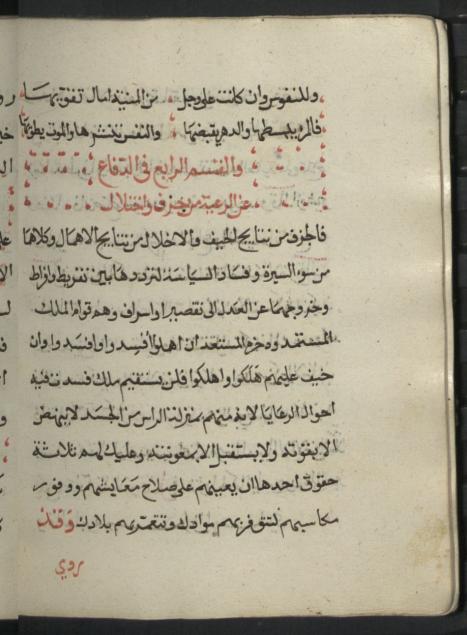 وللنفوس وان كانت على وجل من المنية امال تقويها
فالمرء يبسطها والدهر يقبضها والنفس تنشرها والموت يطويها
والقسم الرابع في الدفاع
عن الرعية من خوف واختلال
فالخوف من نتايج الحيف والاخلال من نتايج الاهمال وكلاهما
من سوء السيرة وفساد السياسة لتردده‍ما بين تفريط وافراط
وخروجهما عن العدل الى تقصير او اسراف وهم قوام الملك
المستمد وذخره المستعد ان اهملوا فسدوا وافسدوا وان
حيف عليهم هلكوا واهلكوا فلن يستقيم ملك فسدت فيه
احوال الرعايا لانه منهم بمنزلة الراس من الجسد لا ينهض
الا بقوته ولا يستقل الا بمعونته وعليك لهم ثلاثة
حقوق احدها ان يعينهم على صلاح معايشهم ووفور
مكاسبهم لتتوفر بهم موادك وتتعمر بهم بلادك وقد
روي